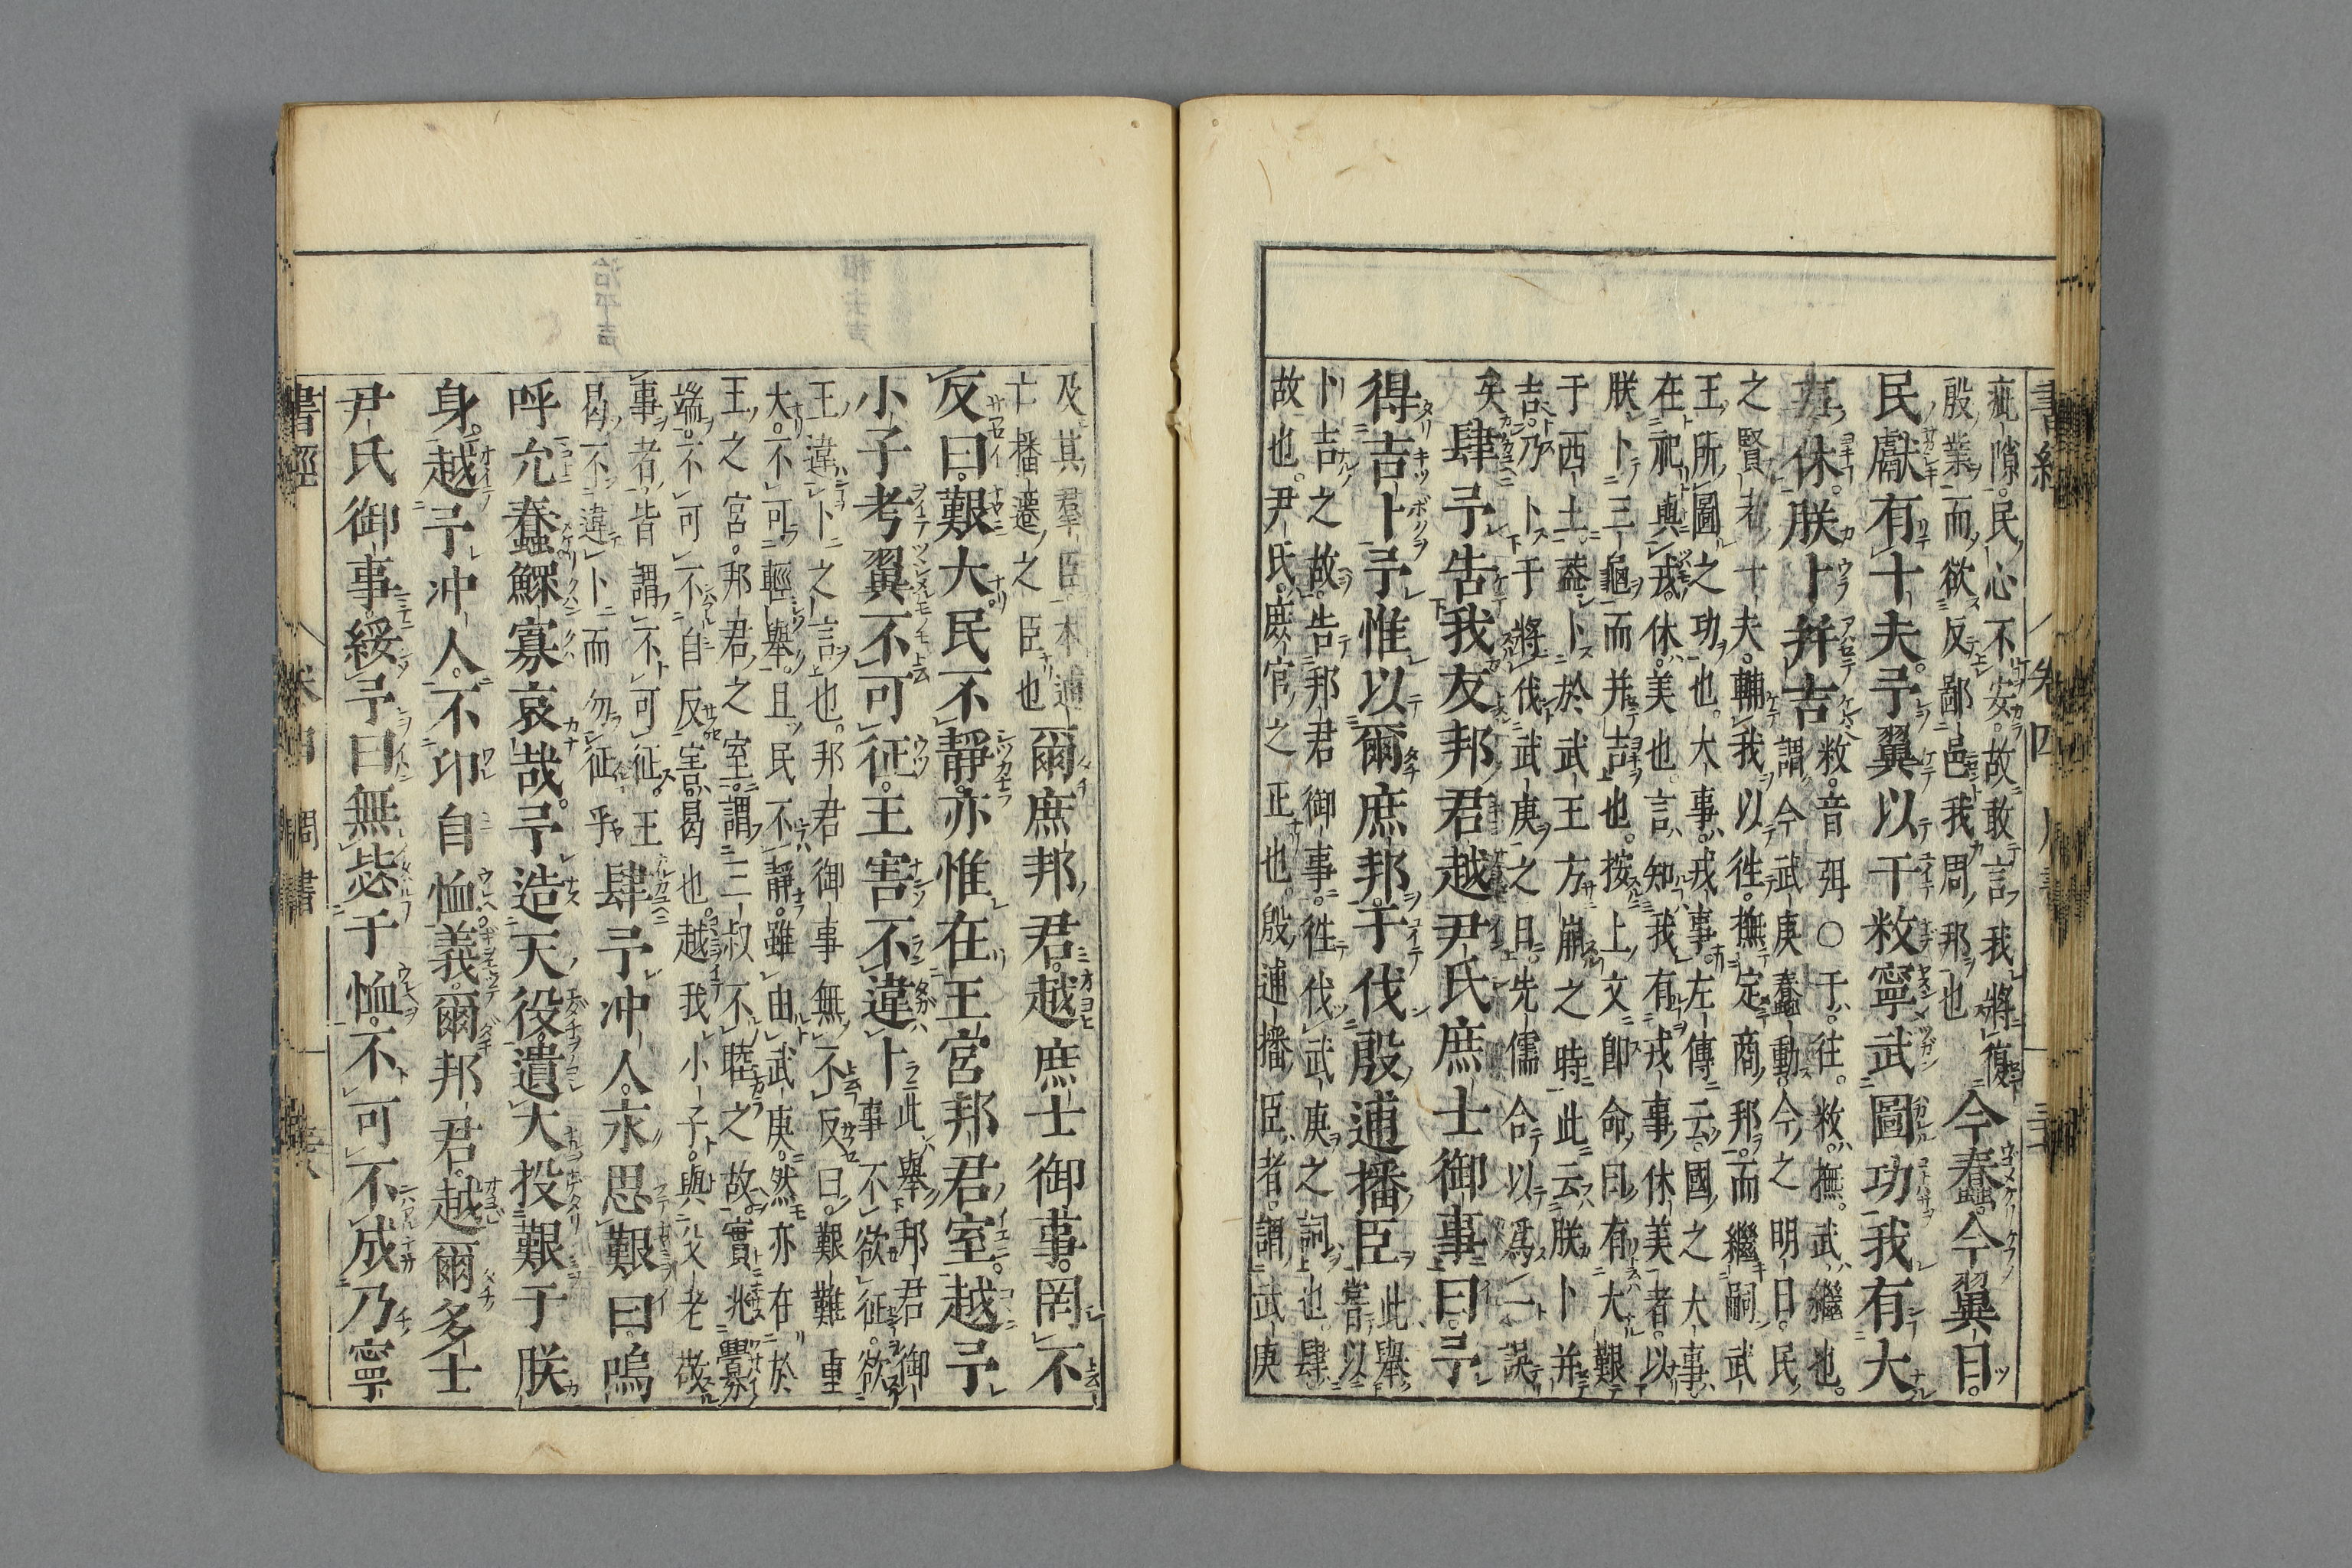 疵隙。民心不安。故敢言我將復
殷業。而欲反鄙邑我周邦也
今蠢今翼日。
民獻有十夫。予翼以于敉寧武圖功我有大
事休。朕卜幷吉
敉。音弭○于。往。敉。撫。武。繼也。
謂今武庚蠢動。今之明日。民
之賢者十夫。輔我以徃。撫定商邦。而繼嗣武
王所圖之功也。大事。戎事。左傳云。國之大事。
在祀與戎。休。美也。言知我有戎事休美者。以
朕卜三龜而并吉也。按上文卽命曰有大艱
于西土。蓋卜於武王方崩之時。此云朕卜并
吉。乃卜于將伐武庚之日。先儒合以爲一誤
矣
肆予告我友邦君越尹氏庶士御事曰。予
得吉卜予惟以爾庶邦。于伐殷逋播臣
此舉
嘗以
卜吉之故。告邦君御事。徃伐武庚之詞也。肆
故也。尹氏。庶官之正也。殷逋播臣者。謂武庚
及其羣臣本逋
亡播遷之臣也
爾庶邦君。越庶士御事。罔不
反曰。艱大民不靜。亦惟在王宮邦君室。越予
小子考翼不可征。王害不違卜
此舉邦君御
事不欲征。欲
王違卜之言也。邦君御事無不反曰。艱難重
大。不可輕舉。且民不靜。雖由武庚。然亦在於
王之宮。邦君之室。謂三叔不睦之故。實兆釁
端。不可不自反。害。曷也。越我小子。與父老敬
事者。皆謂不可征。王
曷不違卜而勿征乎
肆予冲人。永思艱曰。嗚
呼允蠢鰥寡哀哉。予造天役。遺大投艱于朕
身。越予冲人。不卬自恤義。爾邦君。越爾多士
尹氏御事。綏予曰。無毖于恤。不可不成乃寧
書經 卷四 周書